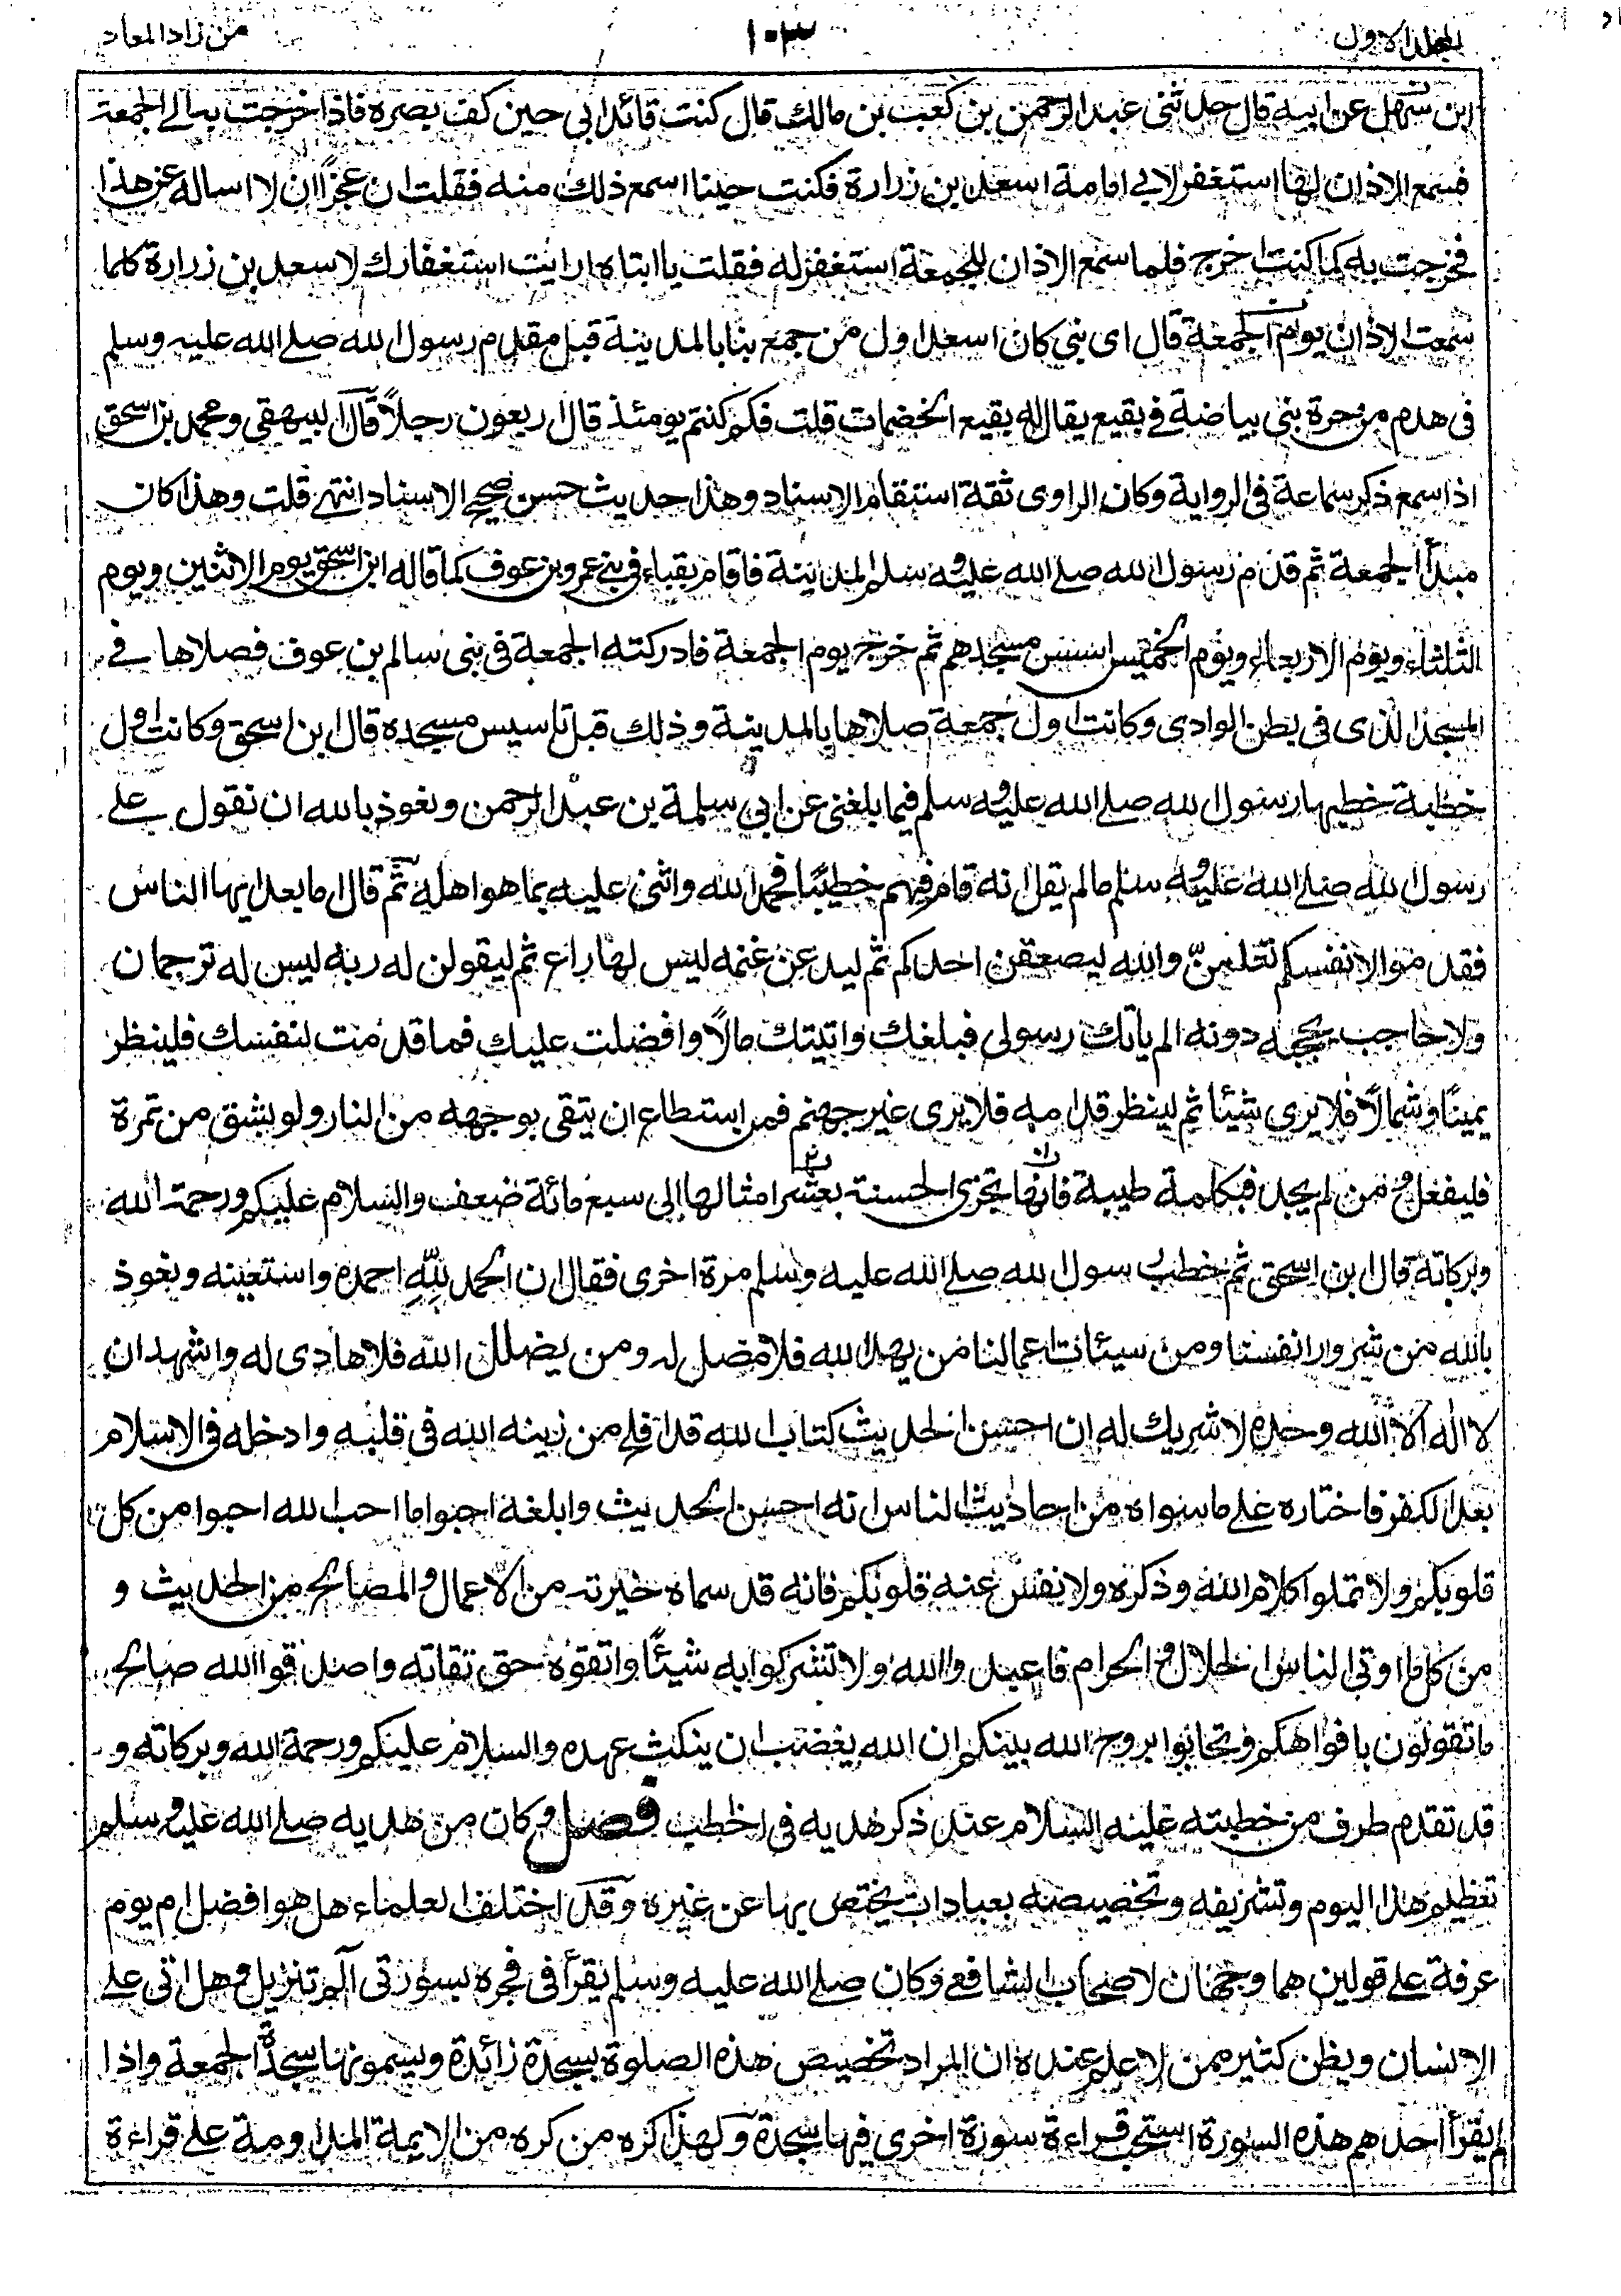 المجلد الاول ١٠٣ من زاد المعاد
ابن سهل عن ابيه قال حدثنى عبد الرحمن بن كعب بن مالك قال كنت قائد ابي حين كف بصره فاذا خرجت به الے الجمعة
فسمع الاذان لها استغفر لابي امامة اسعد بن زرارة فكنت حينا اسمع ذلك منه فقلت ان عجزًا ان لا اساله عن هذا
فخرجت به كما كنت اخرج فلما سمع الاذان للجمعة استغفر له فقلت يا ابتاه ارايت استغفارك لاسعد بن زرارة كلما
سمعت الاذان يوم الجمعة قال اى بنى كان اسعد اول من جمع بنا بالمدينة قبل مقدم رسول الله صلے الله عليه وسلم
فى هدم من حرة بنى بياضة فے بقيع يقال له بقيع الخضمات قلت فكم كنتم يومئذ قال اربعون رجلاً قال البيهقى ومحمد بن اسحق
اذا سمع ذكر سماعة فى الرواية وكان الراوى ثقة استقام الاسناد وهذا حديث حسن صحيح الاسناد انتهے قلت وهذا كان
مبدأ الجمعة ثم قدم رسول الله صلے الله عليه وسلم المدينة فاقام بقباء فى بنے عمرو بن عوف كما قاله ابن اسحق يوم الاثنين ويوم
الثلثاء ويوم الاربعاء ويوم الخميس اسس مسجدهم ثم خرج يوم الجمعة فادركته الجمعة فى بنى سالم بن عوف فصلاها فے
المسجد الذى فى بطن الوادى وكانت اول جمعة صلاها بالمدينة وذلك قبل تاسيس مسجده قال ابن اسحق وكانت اول
خطبة خطبها رسول الله صلے الله عليه وسلم فيما بلغنى عن ابي سلمة بن عبد الرحمن ونعوذ بالله ان نقول علے
رسول الله صلے الله عليه وسلم مالم يقل انه قام فيهم خطيبًا فحمد الله واثنى عليه بما هو اهله ثم قال اما بعد ايها الناس
فقدموا لانفسكم تعلمنّ والله ليصعقن احدكم ثم ليدعن غنمه ليس لها راع ثم ليقولن له ربه ليس له ترجمان
ولا حاجب يحجبه دونه الم ياتك رسولى فبلغك واتيتك مالاً وافضلت عليك فما قدمت لنفسك فلينظر
يمينًا وشمالاً فلا يرى شيئا ثم لينظر قدامه فلا يرى غير جهنم فمن استطاع ان يتقى بوجهه من النار ولو بشق من تمرة
فليفعل ومن لم يجد فبكلمة طيبة فانها تجزى الحسنة بعشر امثالها الى سبع مائة ضعف والسلام عليكم ورحمة الله
وبركاته قال ابن اسحق ثم خطب رسول الله صلے الله عليه وسلم مرة اخرى فقال ان الحمد لِلّٰهِ احمده واستعينه ونعوذ
بالله من شرور انفسنا ومن سيئات اعمالنا من يهد الله فلا مضل له ومن يضلل الله فلا هادى له واشهد ان
لا اله الا الله وحده لا شريك له ان احسن الحديث كتاب الله قد افلح من زينه الله فى قلبه وادخله فى الاسلام
بعد الكفر فاختاره على ماسواه من احاديث الناس انه احسن الحديث وابلغه احبوا ما احب الله احبوا من كل
قلوبكم ولا تملوا كلام الله وذكره ولا تقس عنه قلوبكم فانه قد سماه خيرته من الاعمال والمصالح من الحديث و
من كل ما اوتى الناس الحلال والحرام فاعبدوا الله ولا تشركوا به شيئًا واتقوه حق تقاته واصدقوا الله صالح
ما تقولون بافواهكم وتحابوا بروح الله بينكم ان الله يغضب ان ينكث عهده والسلام عليكم ورحمة الله وبركاته و
قد تقدم طرف من خطبته عليه السلام عند ذكر هديه فى الخطب فصل وكان من هديه صلے الله عليه وسلم
تعظيم هذا اليوم وتشريفه وتخصيصه بعبادات يختص بها عن غيره وقد اختلف العلماء هل هو افضل ام يوم
عرفة علے قولين هما وجهان لاصحاب الشافعے وكان صلے الله عليه وسلم يقرأ فى فجره بسورتى آلم تنزيل وهل اتى علے
الانسان ويظن كثير ممن لا علم عنده ان المراد تخصيص هذه الصلوة بسجدة زائدة ويسمونها سجدة الجمعة واذا
لم يقرأ احدهم هذه السورة استحب قراءة سورة اخرى فيها سجدة ولهذا كره من كره من الايمة المداومة علے قراءة